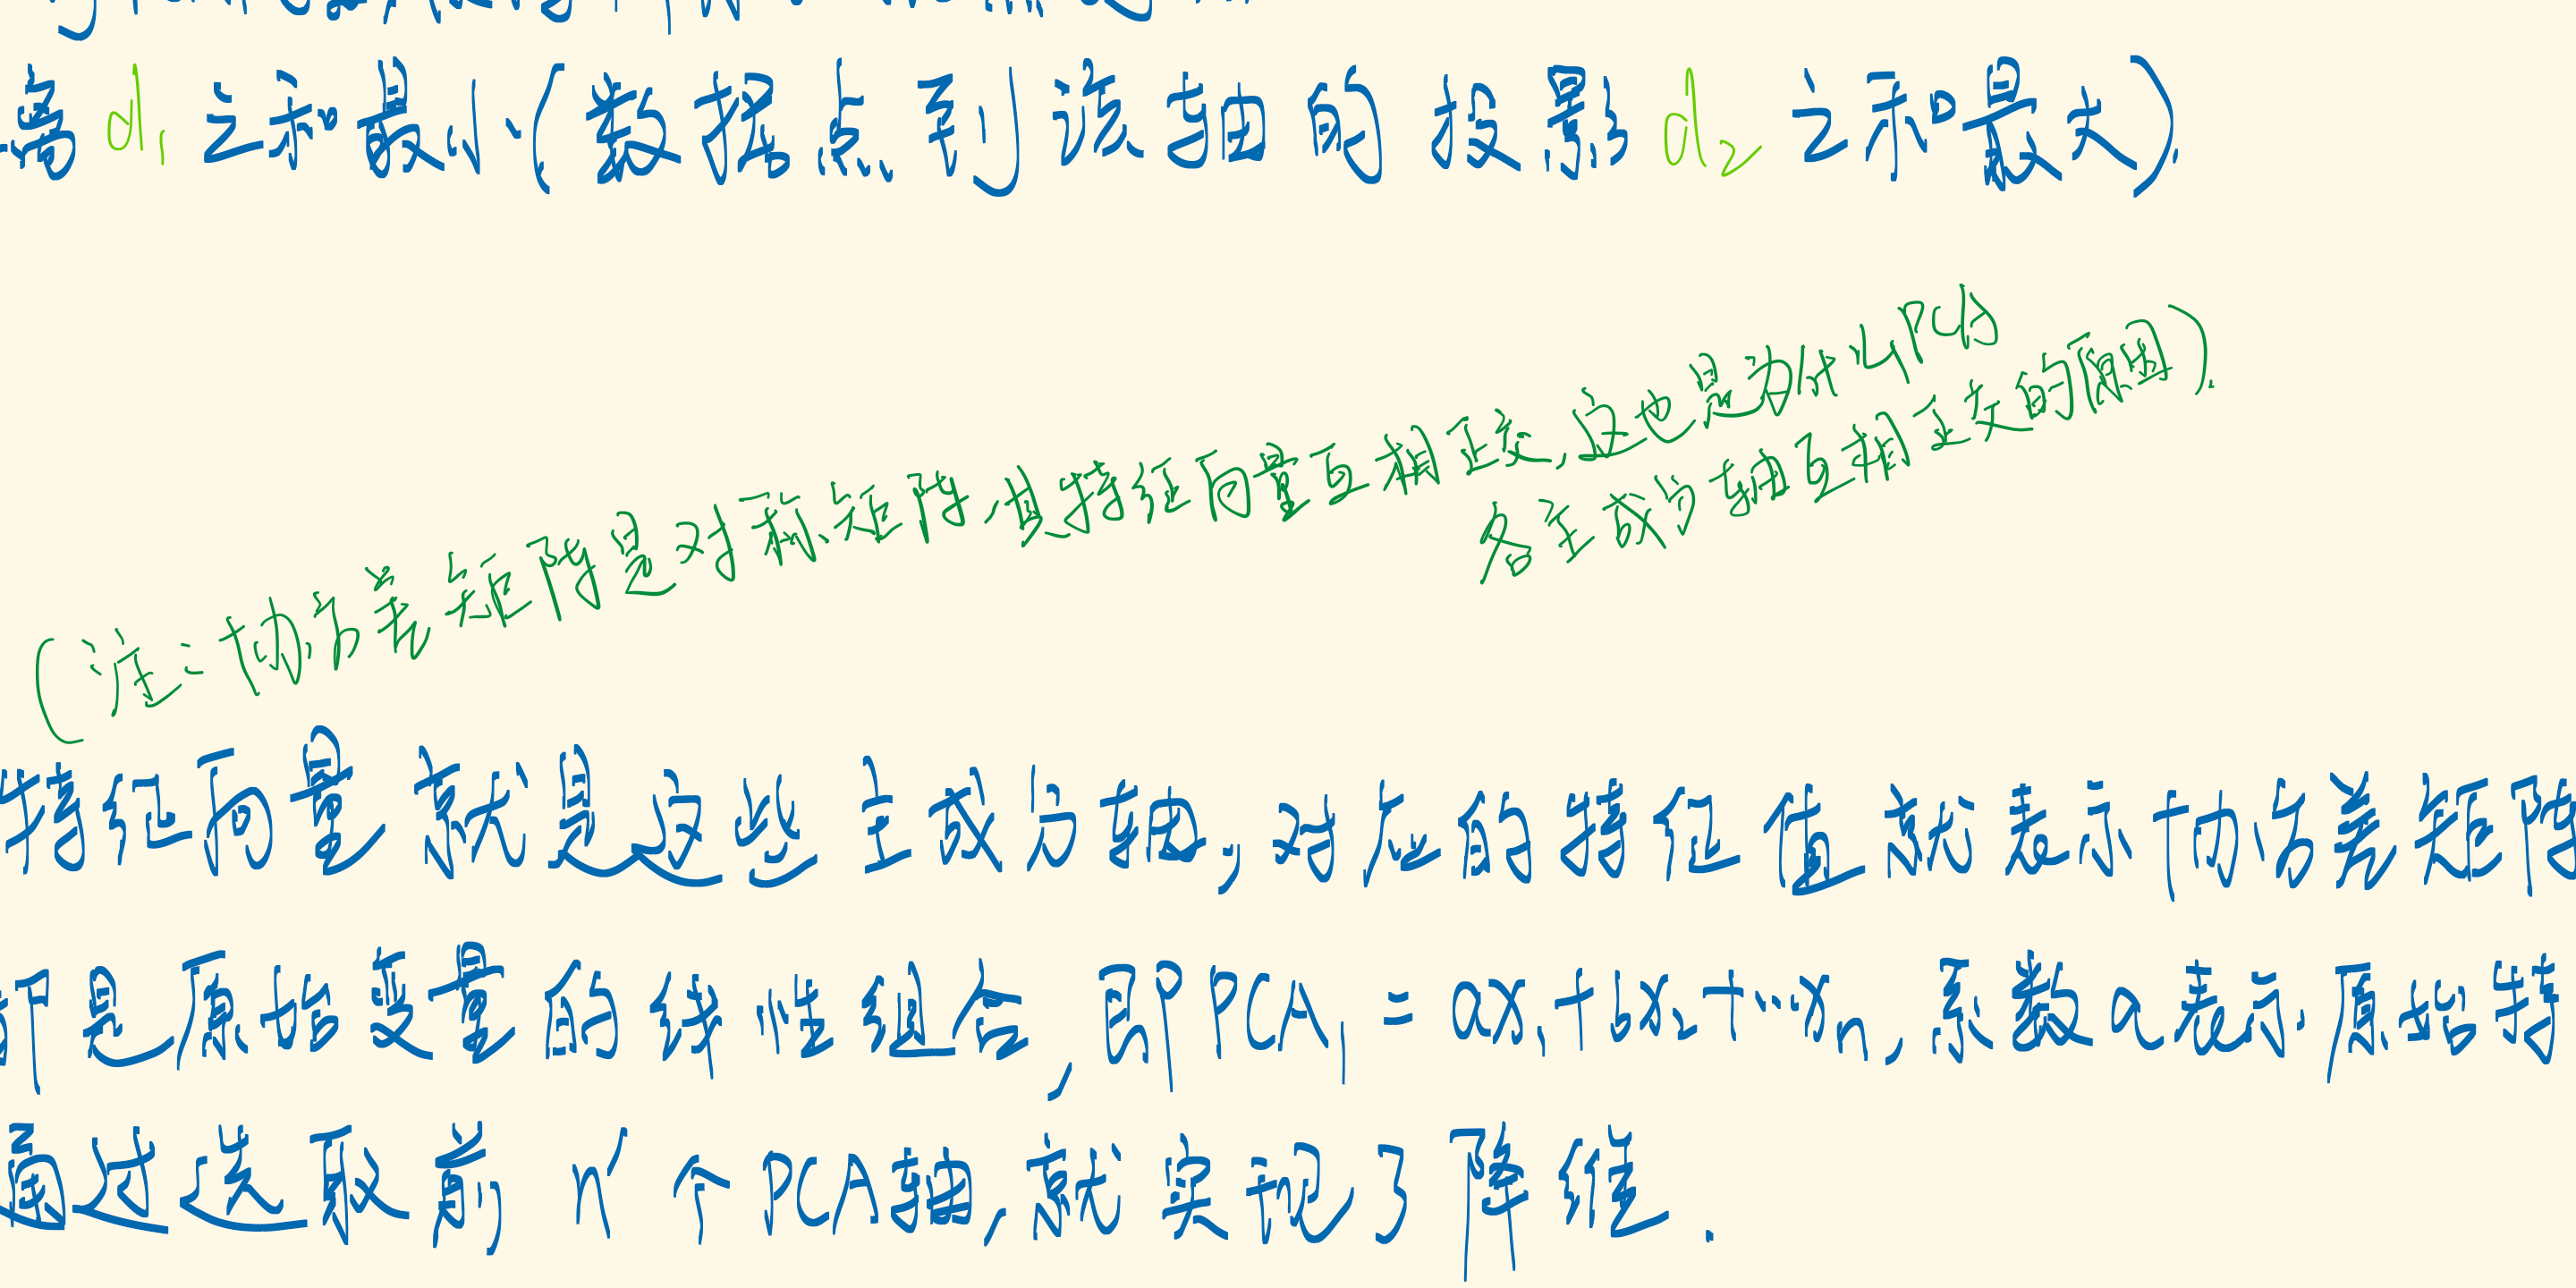 离 d₁ 之和最小(数据点到该轴的投影 d₂ 之和最大).
(注:协方差矩阵是对称矩阵,其特征向量互相正交,这也是为什么PCA
各主成分轴互相正交的原因).
特征向量就是这些主成分轴,对应的特征值就表示协方差矩阵
都是原始变量的线性组合,即PCA₁ = ax₁+bx₂+…xₙ,系数a表示原始特
通过选取前 n' 个PCA轴,就实现了降维.